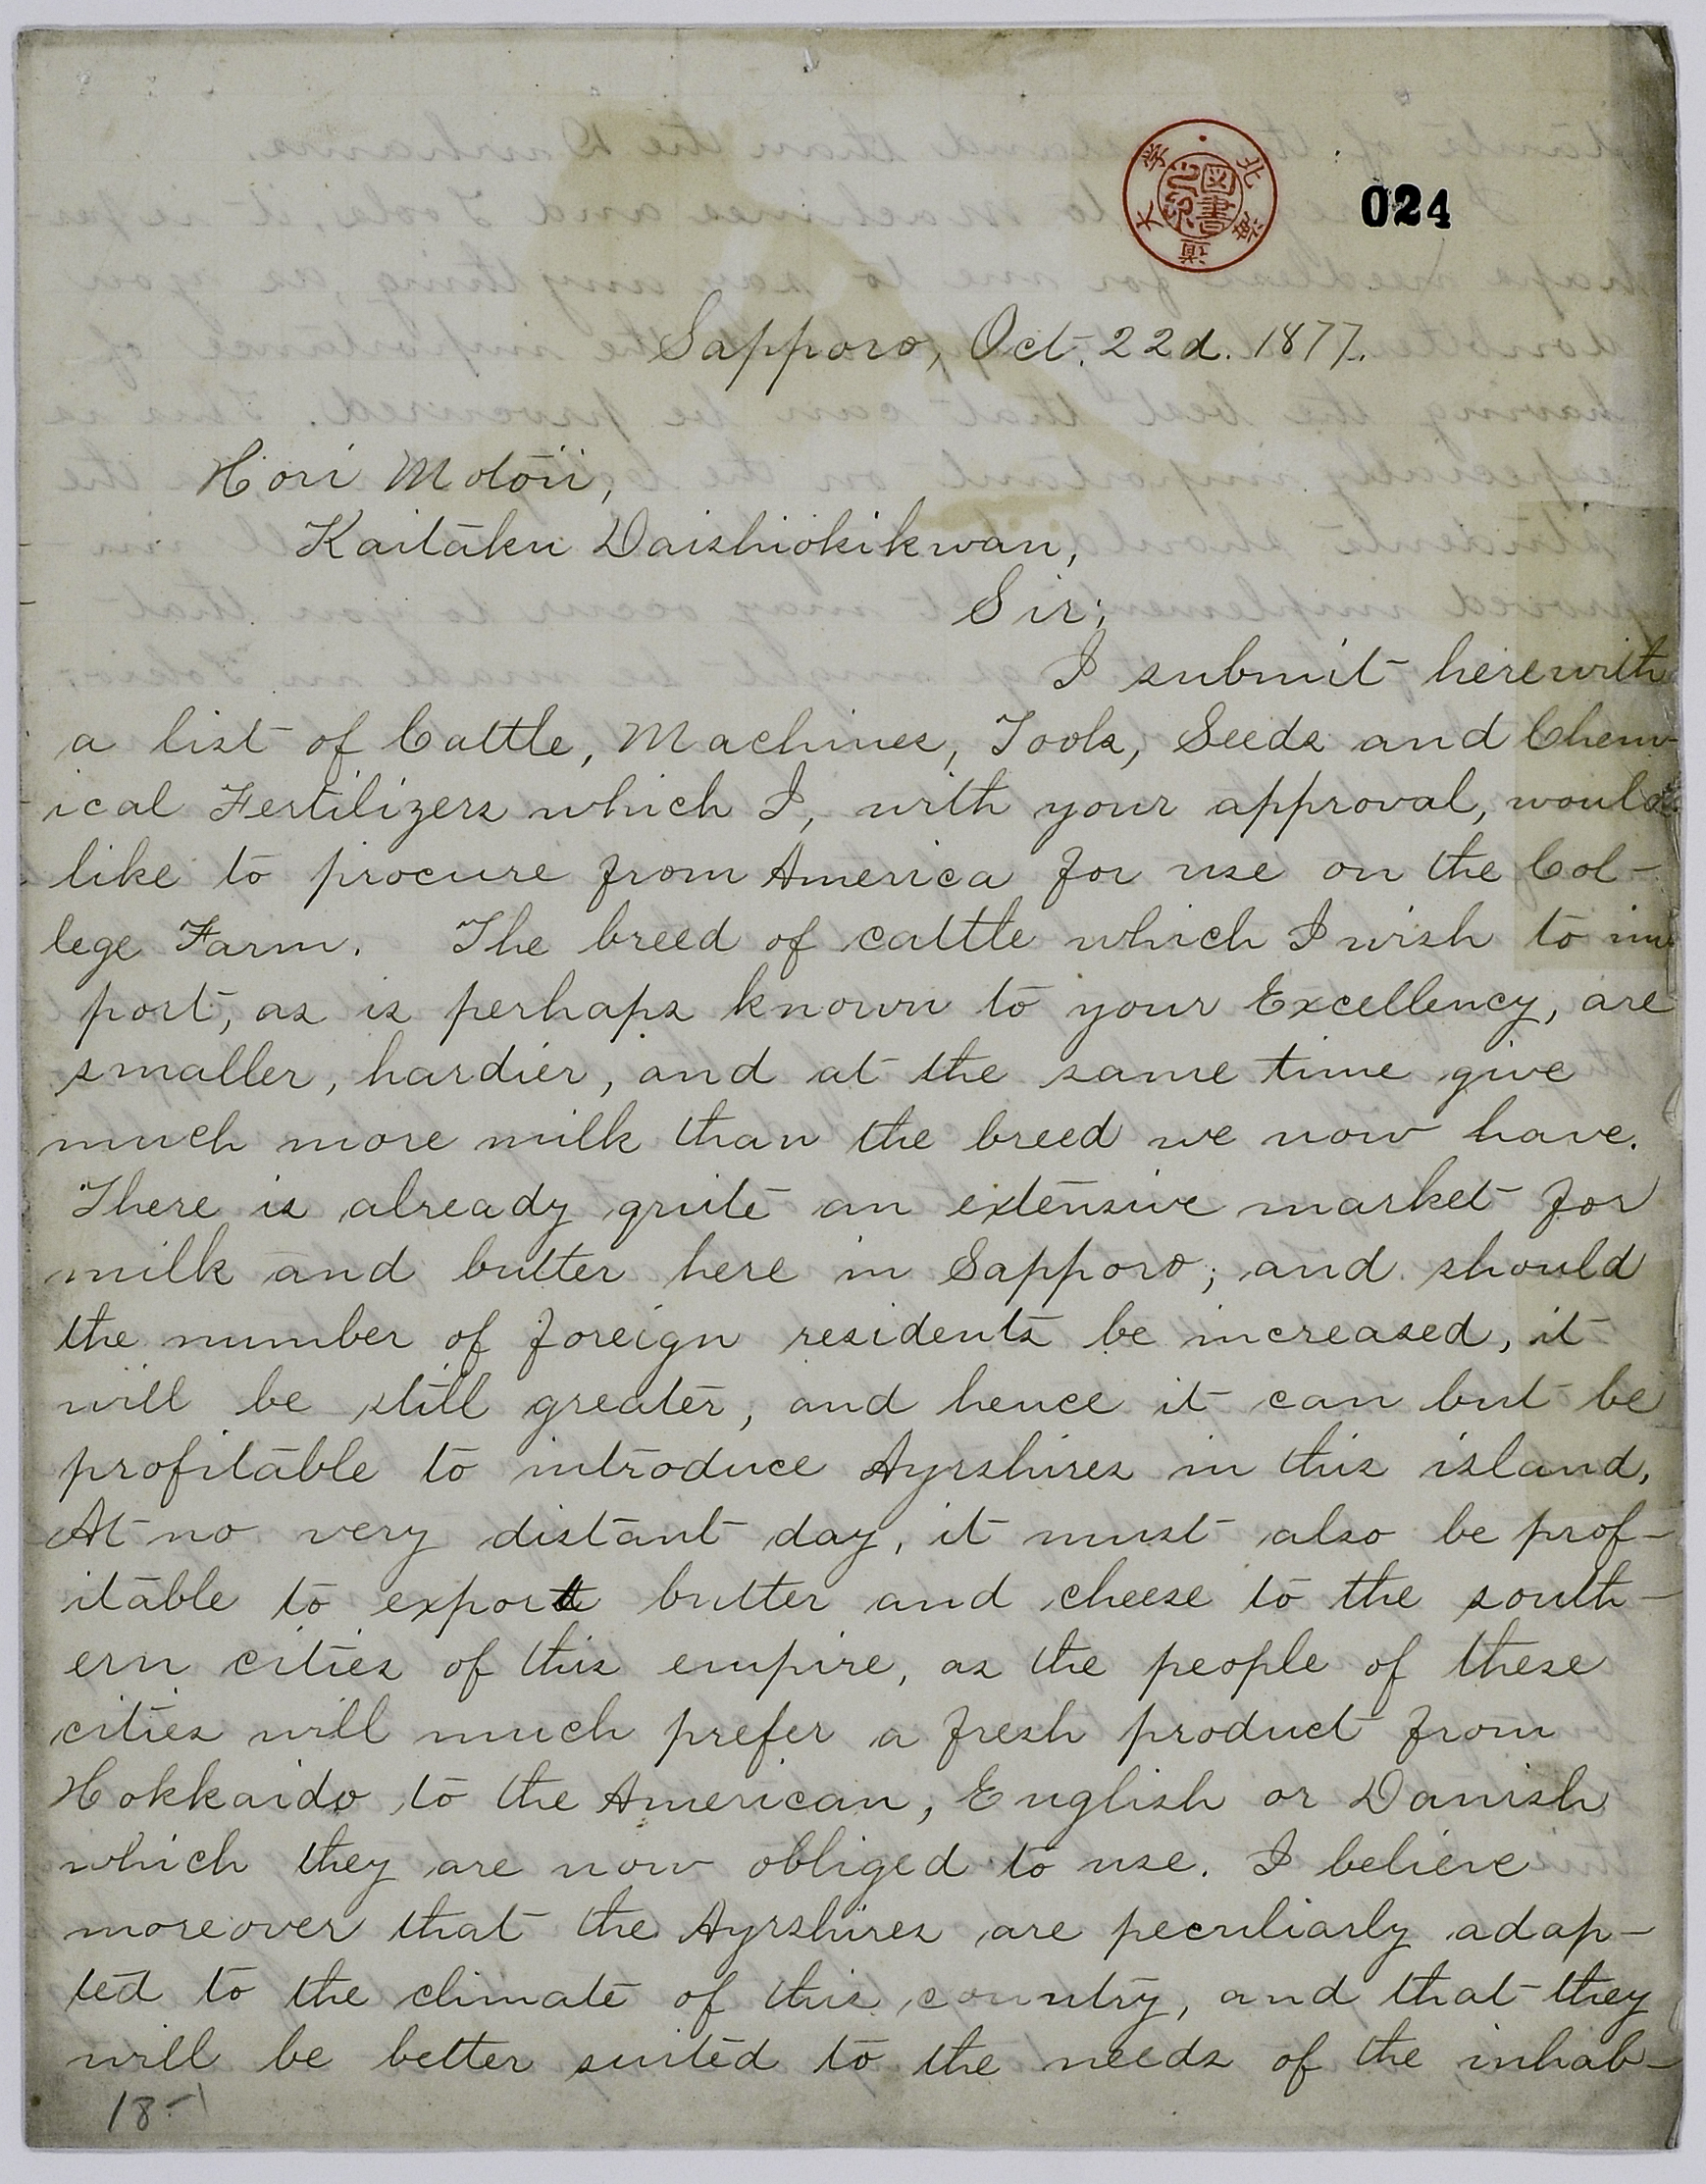 北海道大學
圖書之印
024
Sapporo, Oct. 22d. 1877.
Hori Motoii,
Kaitaku Daishiokikwan,
Sir;
I submit herewith
a list of Cattle, Machines, Tools, Seeds and Chem-
ical Fertilizers which I, with your approval, would
like to procure from America for use on the Col-
lege Farm. The breed of cattle which I wish to im-
port, as is perhaps known to your Excellency, are
smaller, hardier, and at the same time give
much more milk than the breed we now have.
There is already quite an extensive market for
milk and butter here in Sapporo; and should
the number of foreign residents be increased, it
will be still greater, and hence it can but be
profitable to introduce Ayrshires in this island.
At no very distant day, it must also be prof-
itable to export butter and cheese to the south-
ern cities of this empire, as the people of these
cities will much prefer a fresh product from
Hokkaido to the American, English or Danish
which they are now obliged to use. I believe
moreover that the Ayrshires are peculiarly adap-
ted to the climate of this country, and that they
will be better suited to the needs of the inhab-
18-1